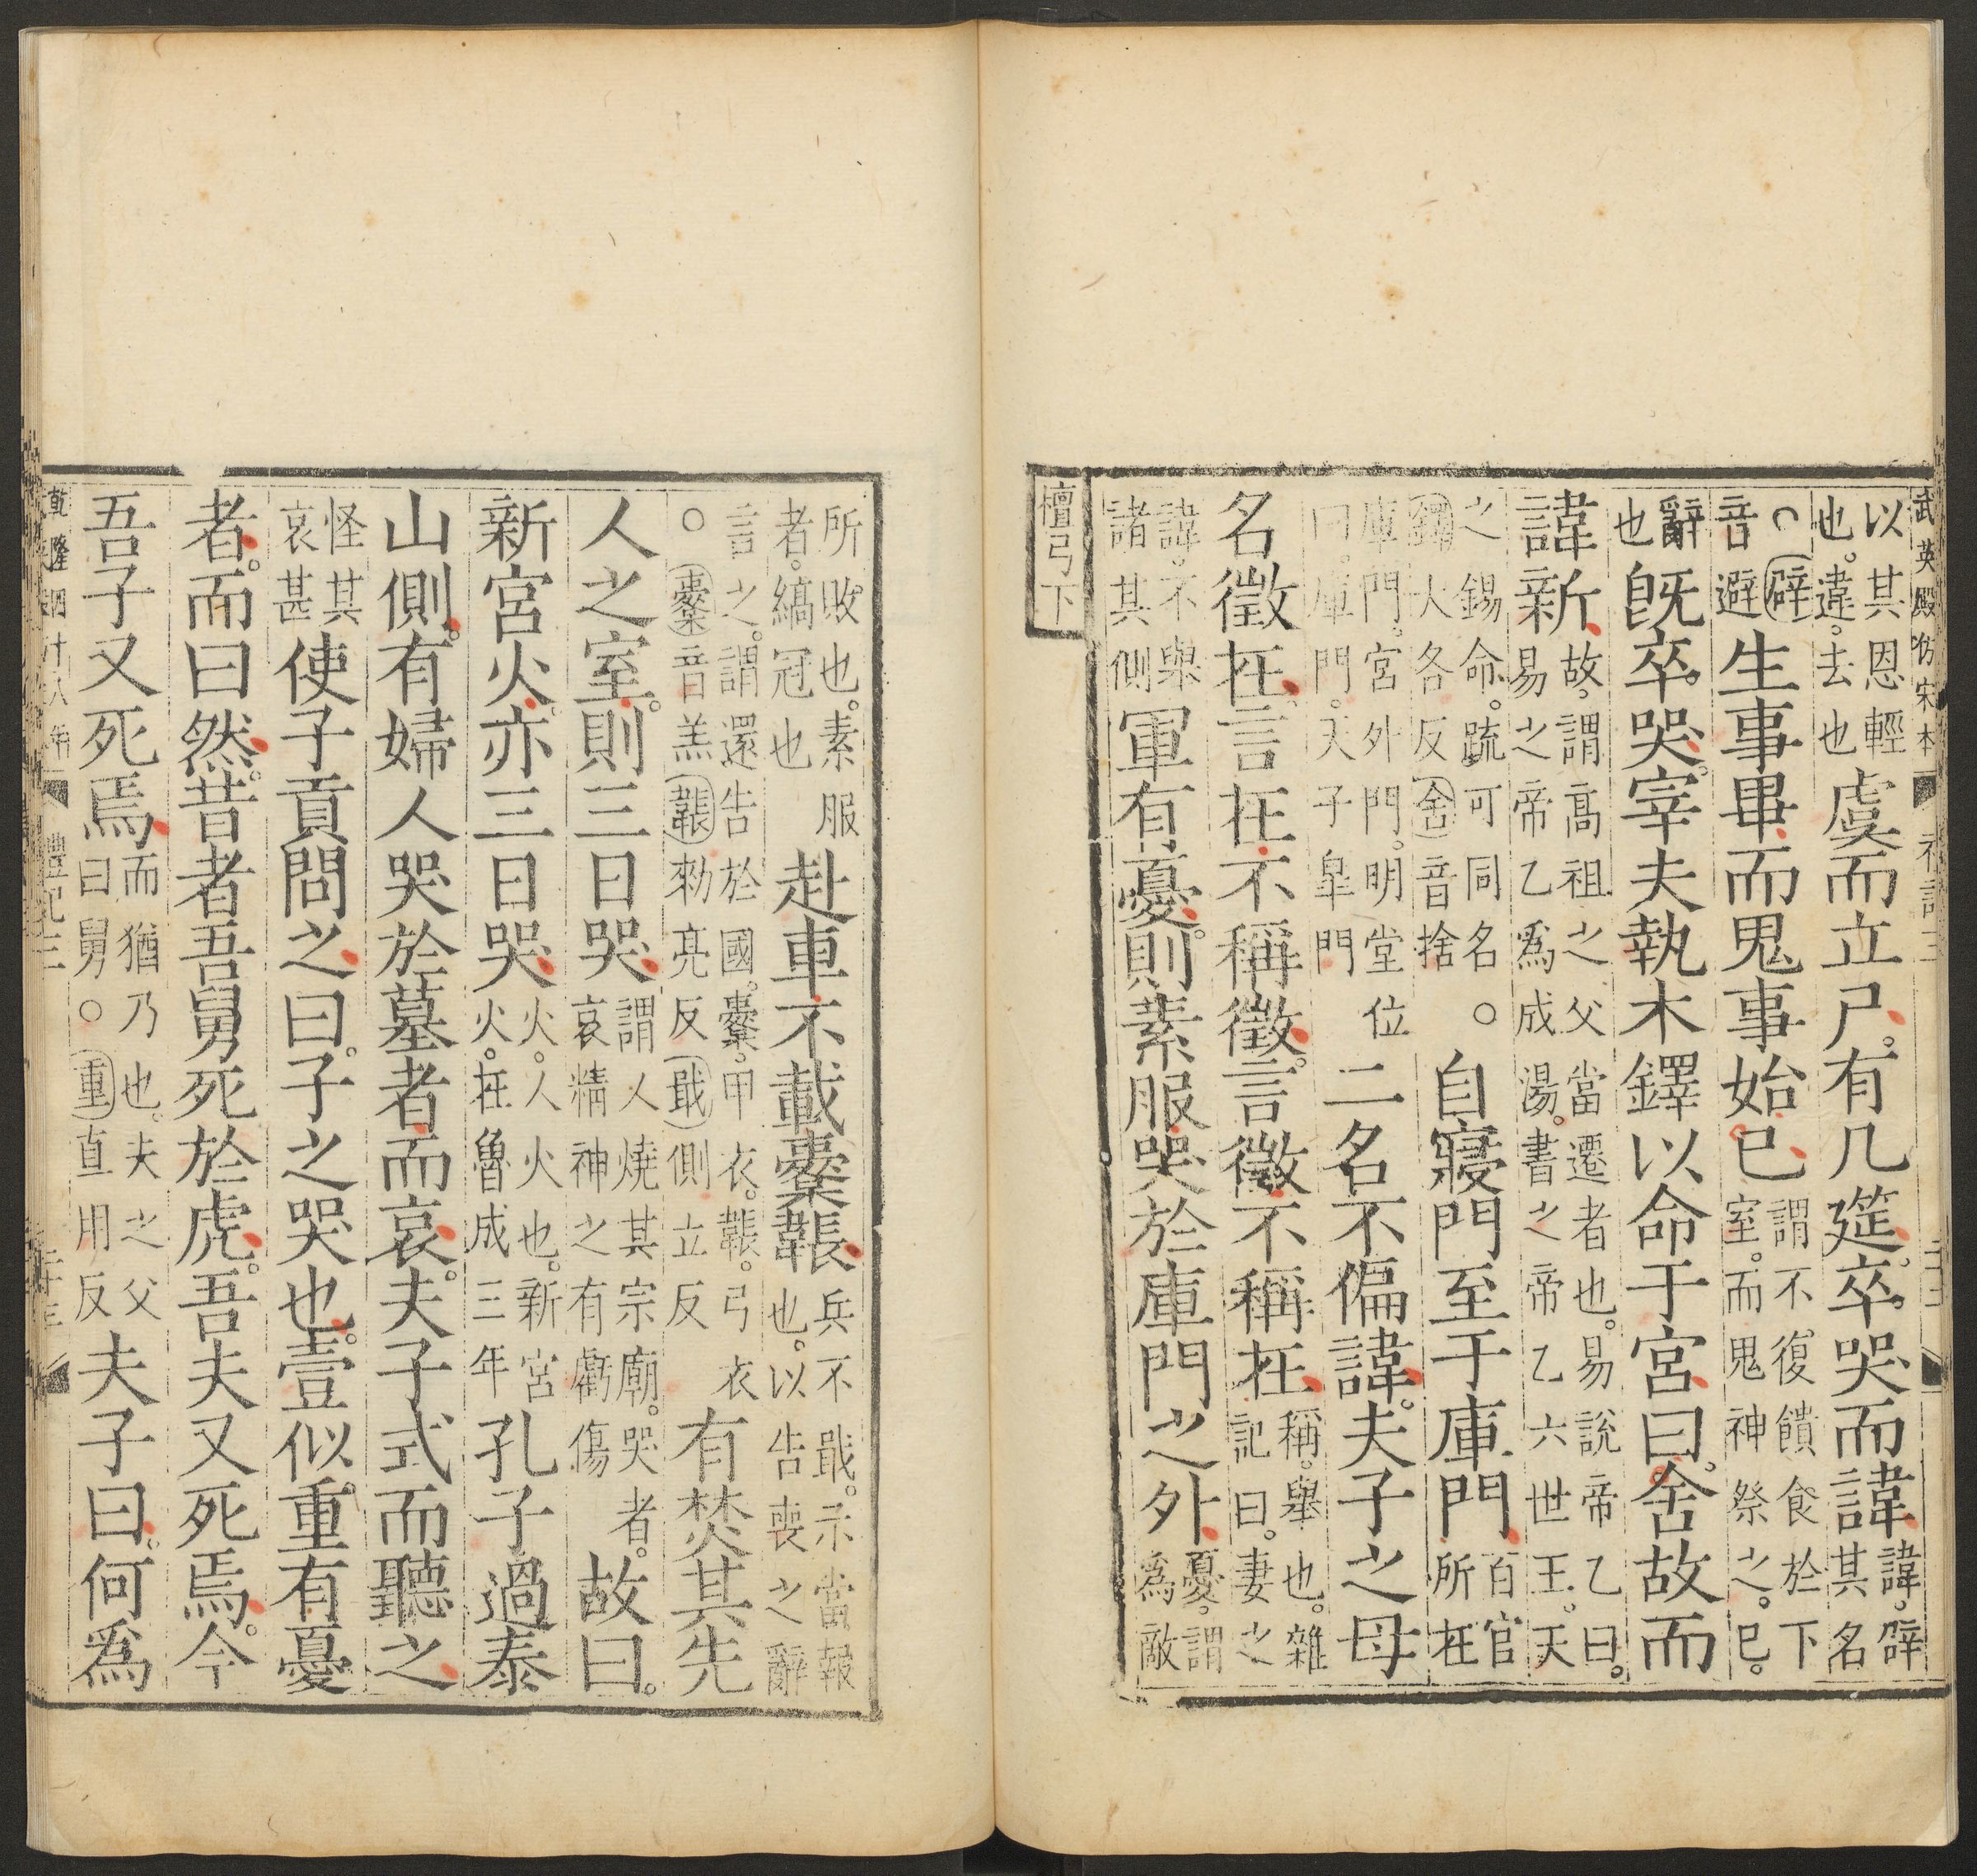 武英殿仿宋本 禮記三
以其恩輕也。違。去也虞而立尸。有几筵。卒。哭而諱諱。辟其名
○辟音避生事畢而鬼事始已謂不復饋食於下室。而鬼神祭之。已。
辭也旣卒。哭。宰夫執木鐸以命于宮曰。舍故而
諱新故謂高祖之父當遷者也。易說帝乙曰。易之帝乙爲成湯。書之帝乙六世王。天
之錫命。疏可同名。○鐸大各反舍音捨自寢門至于庫門百官所在
庫門。宮外門。明堂位曰。庫門。天子皐門二名不偏諱。夫子之母
名徵在言在不稱徵。言徵不稱在稱。舉也。雜記曰。妻之
諱。不舉諸其側軍有憂。則素服哭於庫門之外憂。謂爲敵
檀弓下
所敗也。素服者。縞冠也赴車不載櫜韔兵不戢。示當報也。以告喪之辭
言之。謂還告於國。櫜。甲衣。韔。弓衣○櫜音羔韔勑亮反戢側立反有焚其先
人之室。則三日哭謂人燒其宗廟。哭者。哀精神之有虧傷故曰。
新宮火亦三日哭火。人火也。新宮火。在魯成三年孔子過泰
山側。有婦人哭於墓者而哀。夫子式而聽之
怪其哀甚使子貢問之曰。子之哭也。壹似重有憂
者。而曰然。昔者吾舅死於虎。吾夫又死焉。今
吾子又死焉而猶乃也。夫之父曰舅。○重直用反夫子曰。何爲
乾隆四十八年 禮記三